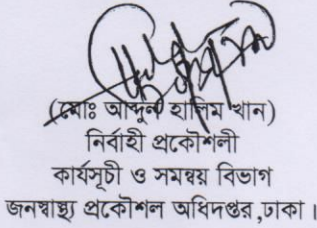 (মোঃ আব্দুল হালিম খান)
নির্বাহী প্রকৌশলী
কার্যসূচী ও সমন্বয় বিভাগ
জনস্বাস্থ্য প্রকৌশল অধিদপ্তর ,ঢাকা।